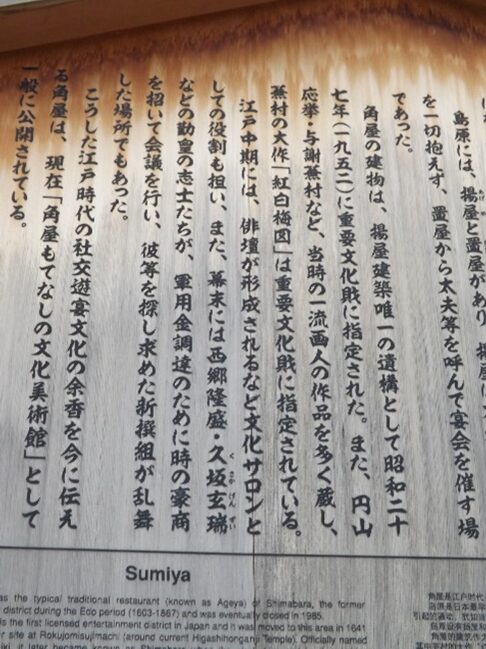 島原には、揚屋と置屋があり、揚屋は
を一切抱えず、置屋から太夫等を呼んで宴会を催す場
であった。
角屋の建物は、揚屋建築唯一の遺構として昭和二十
七年(一九五二)に重要文化財に指定された。また、円山
応挙・与謝蕪村など、当時の一流画人の作品を多く蔵し、
蕪村の大作「紅白梅図」は重要文化財に指定されている。
江戸中期には、俳壇が形成されるなど文化サロンと
しての役割も担い、また、幕末には西郷隆盛・久坂玄瑞
などの勤皇の志士たちが、軍用金調達のために時の豪商
を招いて会議を行い、彼等を探し求めた新撰組が乱舞
した場所でもあった。
こうした江戸時代の社交遊宴文化の余香を今に伝え
る角屋は、現在「角屋もてなしの文化美術館」として
一般に公開されている。
Sumiya
as the typical traditional restaurant (known as Ageya) of Shimabara, the former
district during the Edo period (1603-1867) and was eventually closed in 1985.
is the first licensed entertainment district in Japan and it was moved to this area in 1641
site at Rokujomisujimachi (around current Higashihonganji Temple). Officially named
it later became known as Shimabara
角屋是江户时代
岛原是日本最早